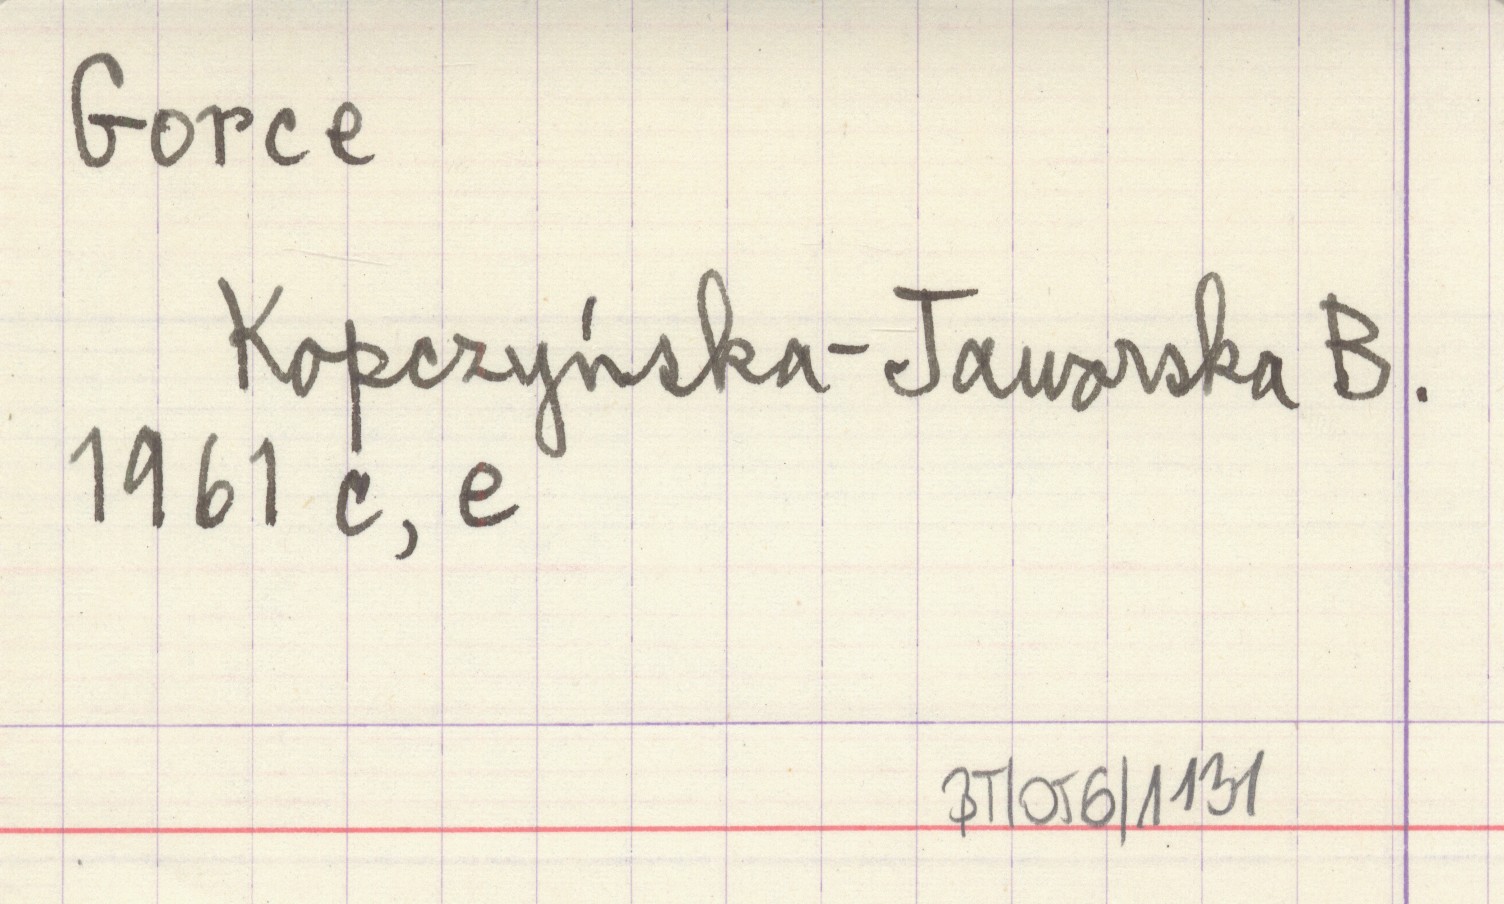 Gorce
Kopczyńska-Jaworska B.
1961 c, e
BT/OJG/1131